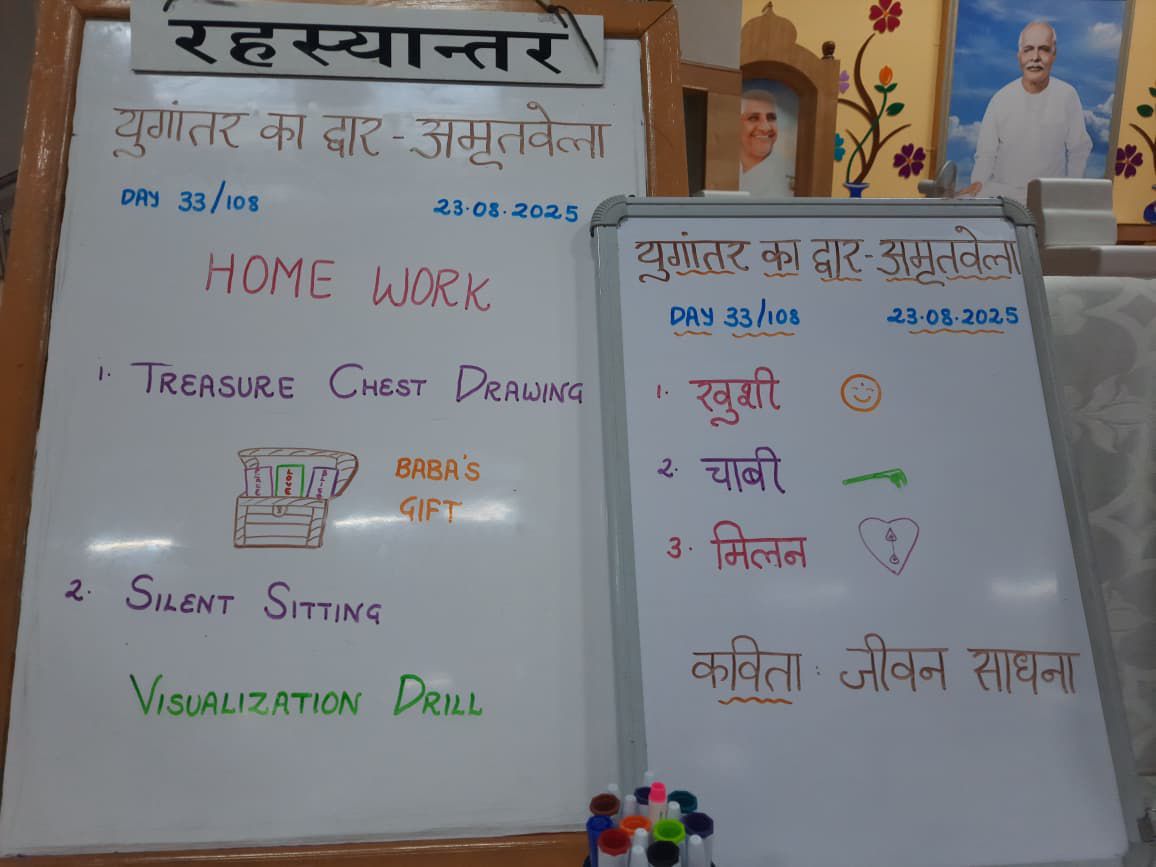 रहस्यान्तर
युगांतर का द्वार - अमृतवेला
DAY 33/108 23.08.2025
HOME WORK
1. TREASURE CHEST DRAWING
LOVE
BABA'S
GIFT
2. SILENT SITTING
VISUALIZATION DRILL
युगांतर का द्वार - अमृतवेला
DAY 33/108 23.08.2025
1. खुशी
2. चाबी
3. मिलन
कविता : जीवन साधना